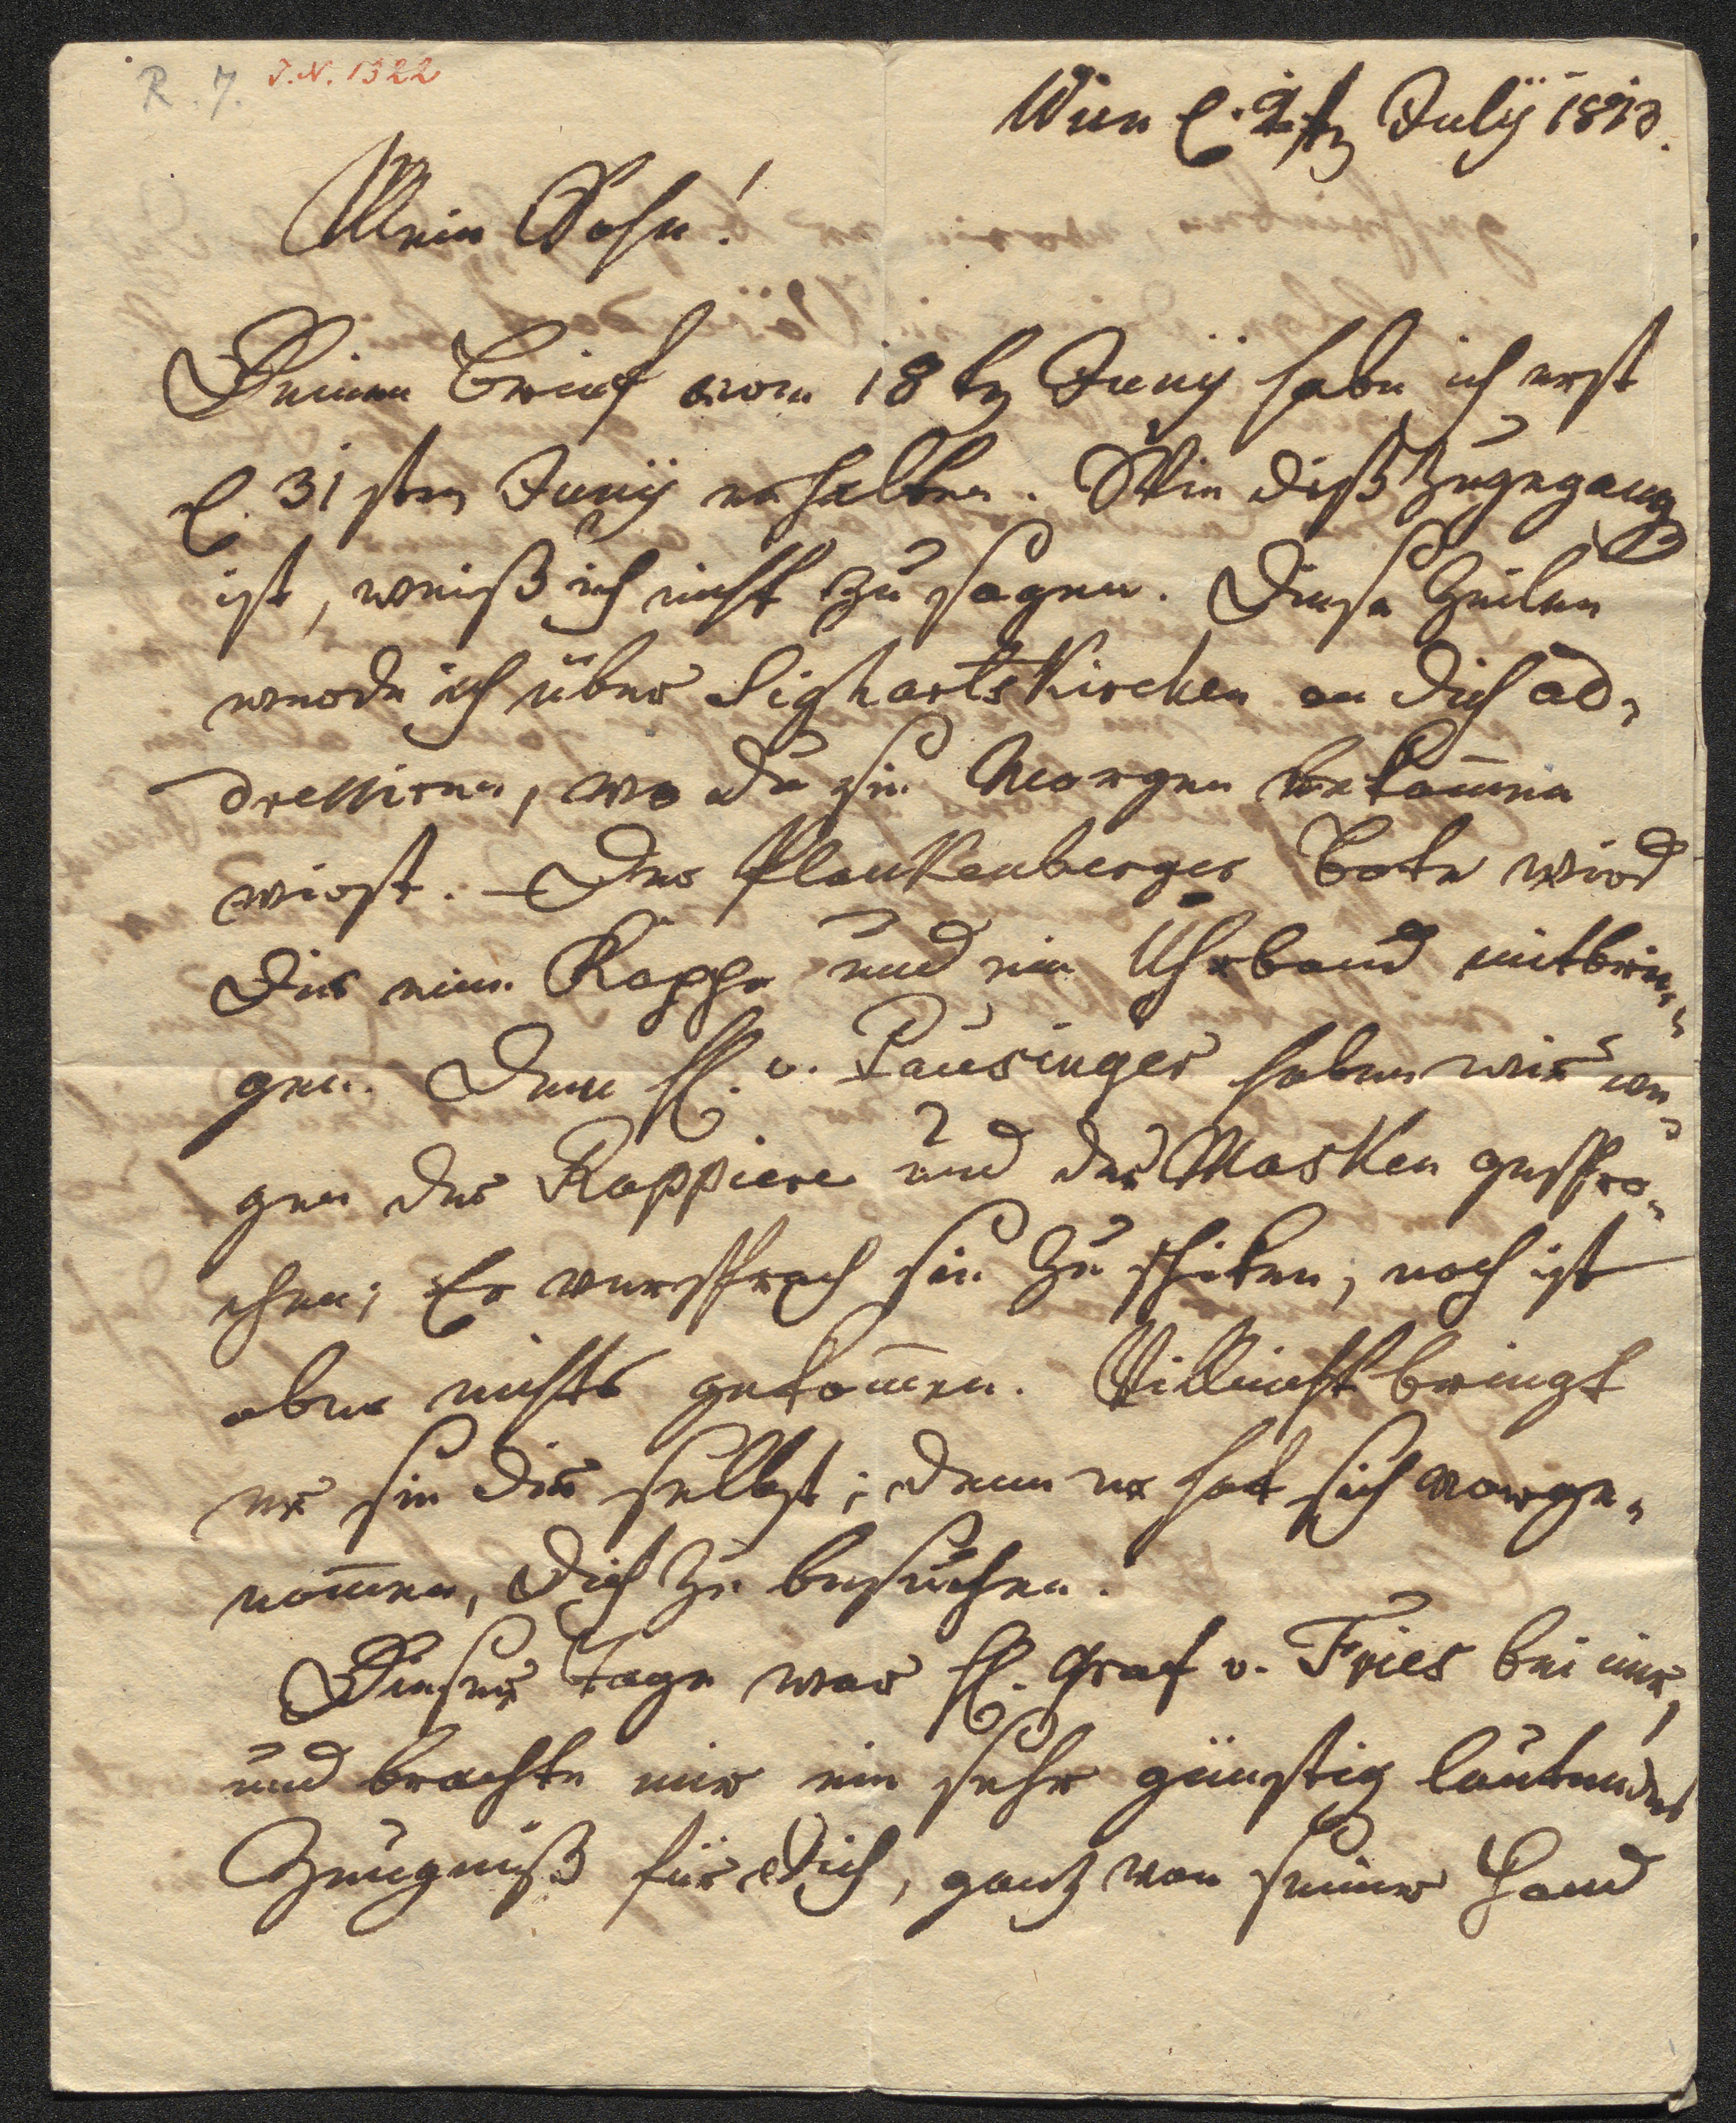 R. 7. I. N. 1322
Wien d. 2t July 1813.
Mein Sohn!
Deinen Brief vom 18 t Juny habe ich erst
d. 31 sten Juny erhalten. Wie diß zugegangen
ist, weiß ich nicht zu sagen. Diese Zeilen
werde ich über Sighartskirchen an dich ad-
dressiren, wo du sie Morgen bekom̅en
wirst. – Der Plankenberger Bote wird
Dir eine Kappe und ein Uhrband mitbrin-
gen. Dem H. v. Pausinger haben wir we-
gen der Rappiere und der Masken gespro-
chen; Er versprach sie zu schiken, noch ist
aber nichts gekom̅en. Villeicht bringt
er sie dir selbst; denn er hat sich vorge-
nom̅en, Dich zu besuchen.
Dieser Tage war H. Graf v. Fries bei mir,
und brachte mir ein sehr günstig lautendes
Zeugniß für Dich, ganz von seiner Hand